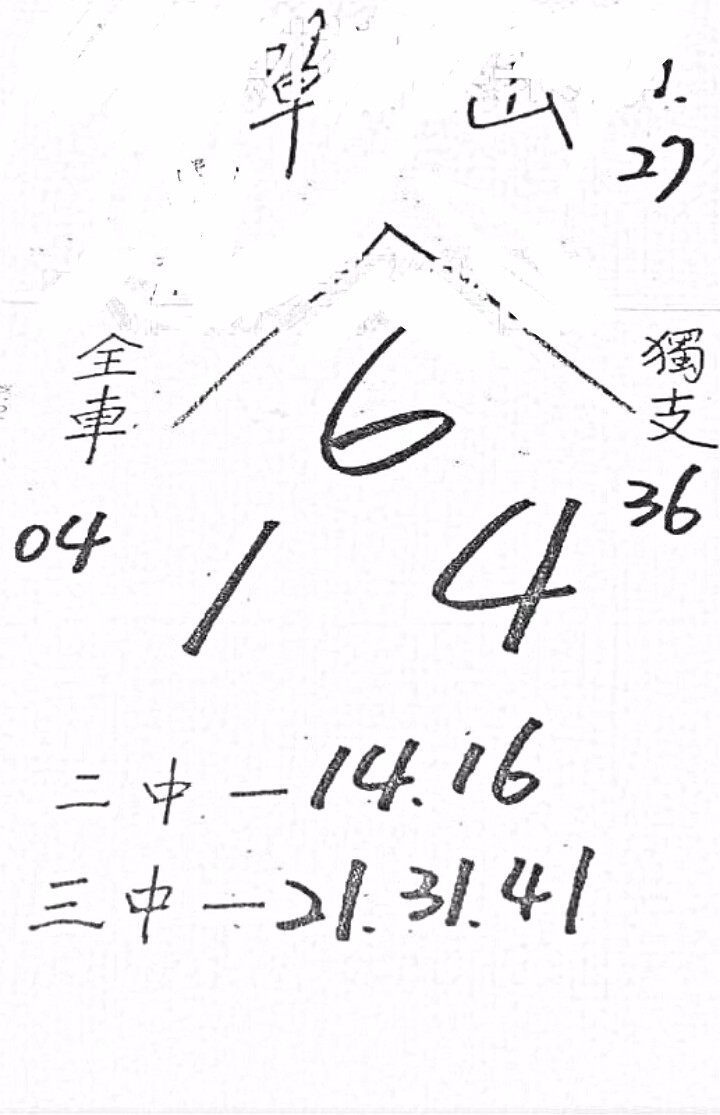 單 山 1.
27
全車 獨支
6
04 36
1 4
二中－14.16
三中－21.31.41